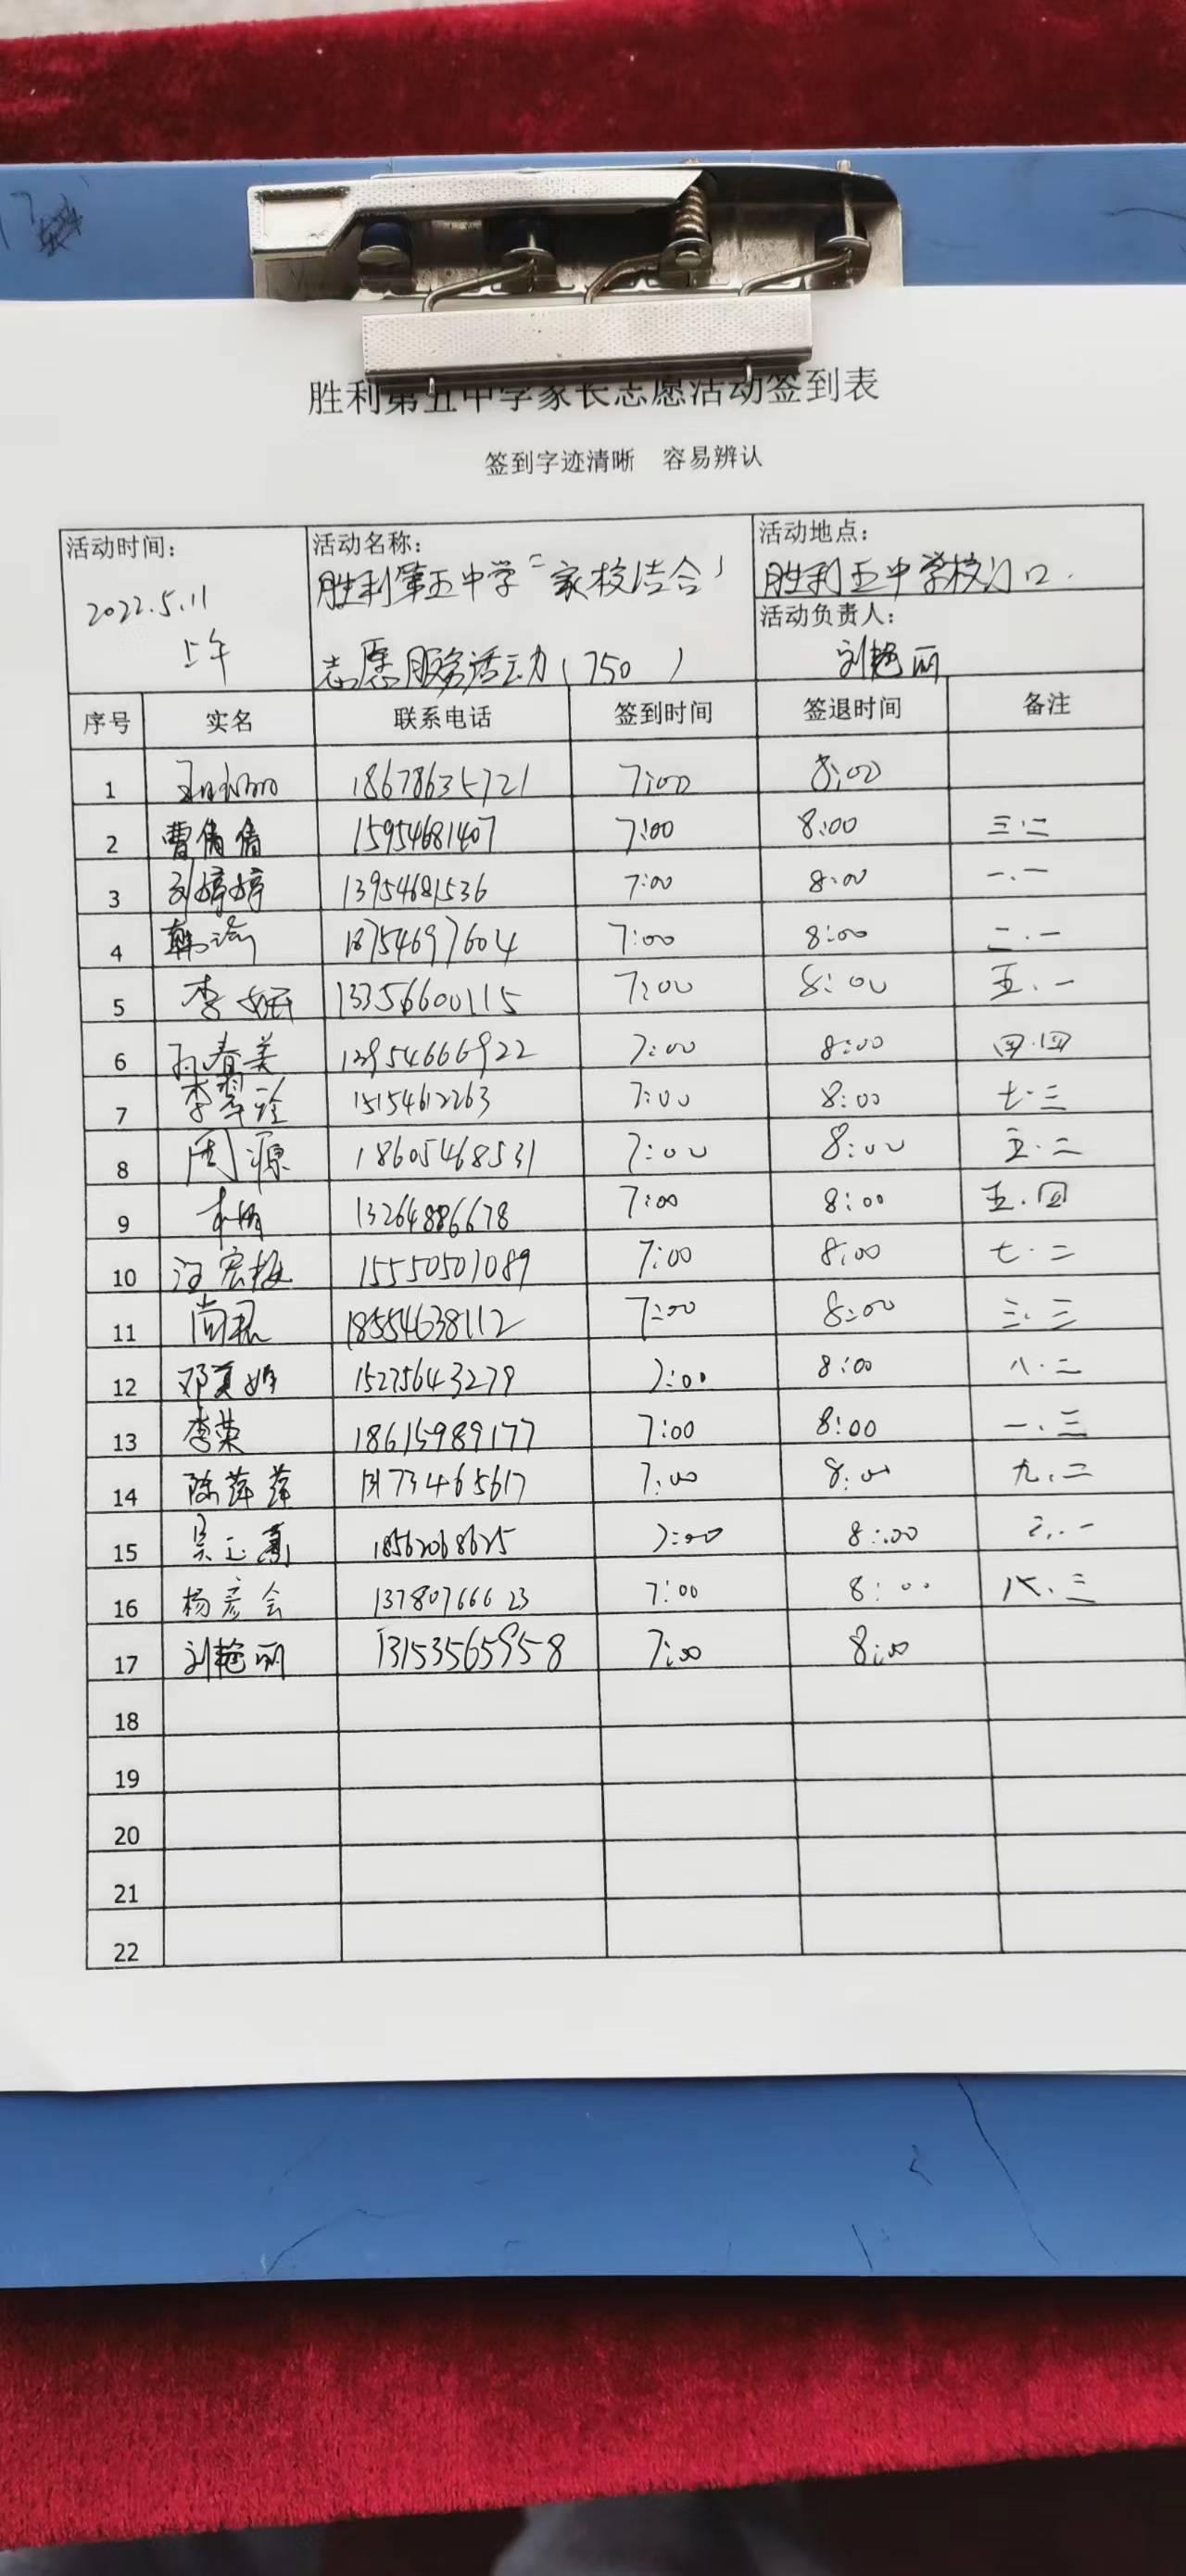 胜利第五中学家长志愿活动签到表
签到字迹清晰 容易辨认
活动时间: 2022.5.11 上午
活动名称: 胜利第五中学“家校结合” 志愿服务活动(750 )
活动地点: 胜利五中学校门口.
活动负责人: 刘艳丽
序号 实名 联系电话 签到时间 签退时间 备注
1 18678635721 7:00 8:00
2 曹倩倩 15954681407 7:00 8:00 三.二
3 刘婷婷 13954681536 7:00 8:00 一.一
4 韩 18754697604 7:00 8:00 二.一
5 李 13356600115 7:00 8:00 五.一
6 孙春美 13954666922 7:00 8:00 四.四
7 李翠玲 15154612263 7:00 8:00 七.三
8 周源 18605468531 7:00 8:00 五.二
9 13264886678 7:00 8:00 五.四
10 汪宏 15550501089 7:00 8:00 七.二
11 尚 18554638112 7:00 8:00 三.三
12 邓夏 15275643279 7:00 8:00 八.二
13 李荣 18615989177 7:00 8:00 一.三
14 陈萍萍 7:00 8:00 九.二
15 吴 18562068625 7:00 8:00
16 杨彦会 13780766623 7:00 8:00 八.三
17 刘艳丽 13153565958 7:00 8:00
18
19
20
21
22